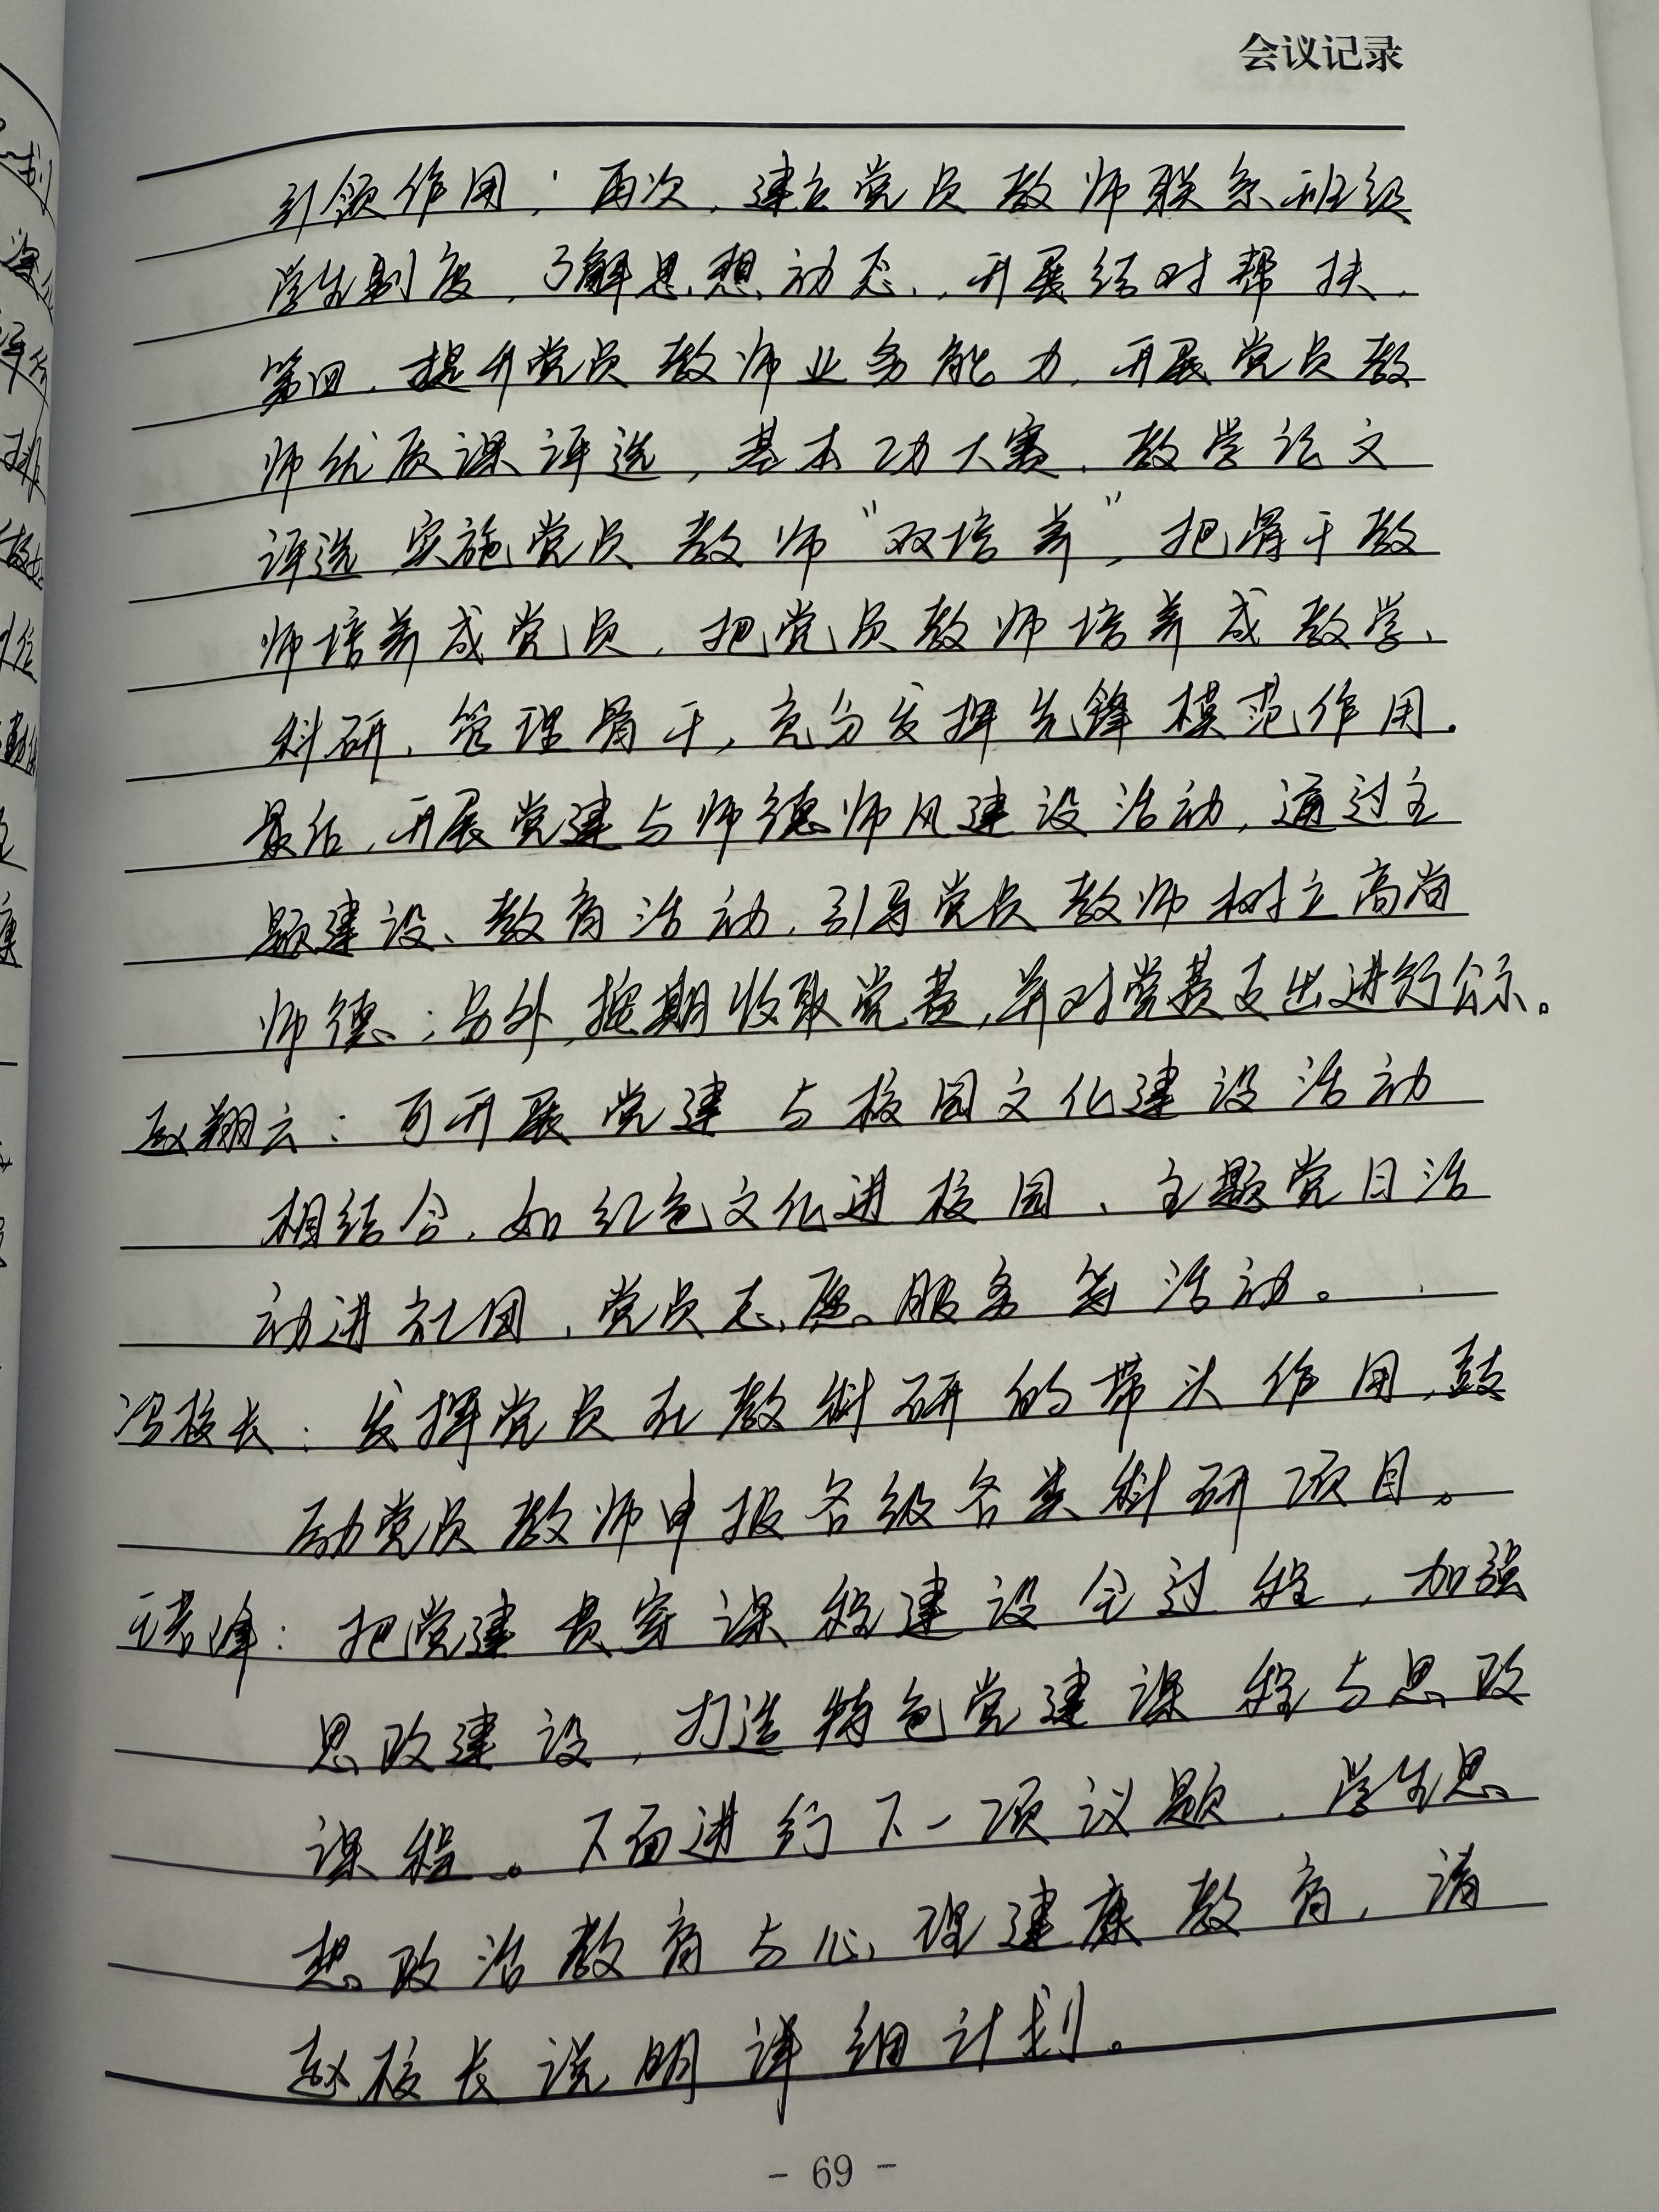 会议记录
引领作用；再次，建立党员教师联系班级
学生制度，了解思想动态，开展结对帮扶，
第四，提升党员教师业务能力，开展党员教
师优质课评选，基本功大赛，教学论文
评选 实施党员教师“双培养”，把骨干教
师培养成党员，把党员教师培养成教学、
科研、管理骨干，充分发挥先锋模范作用。
最后，开展党建与师德师风建设活动，通过主
题建设、教育活动，引导党员教师树立高尚
师德；另外，按期收取党费，并对党费支出进行公示。
赵翔云：可开展党建与校园文化建设活动
相结合，如红色文化进校园、主题党日活
动进社团，党员志愿服务等活动。
冯校长：发挥党员在教科研的带头作用，鼓
励党员教师申报各级各类科研项目。
峰：把党建贯穿课程建设全过程，加强
思政建设，打造特色党建课程与思政
课程。下面进行下一项议题，学生思
想政治教育与心理建康教育，请
赵校长说明详细计划。
- 69 -